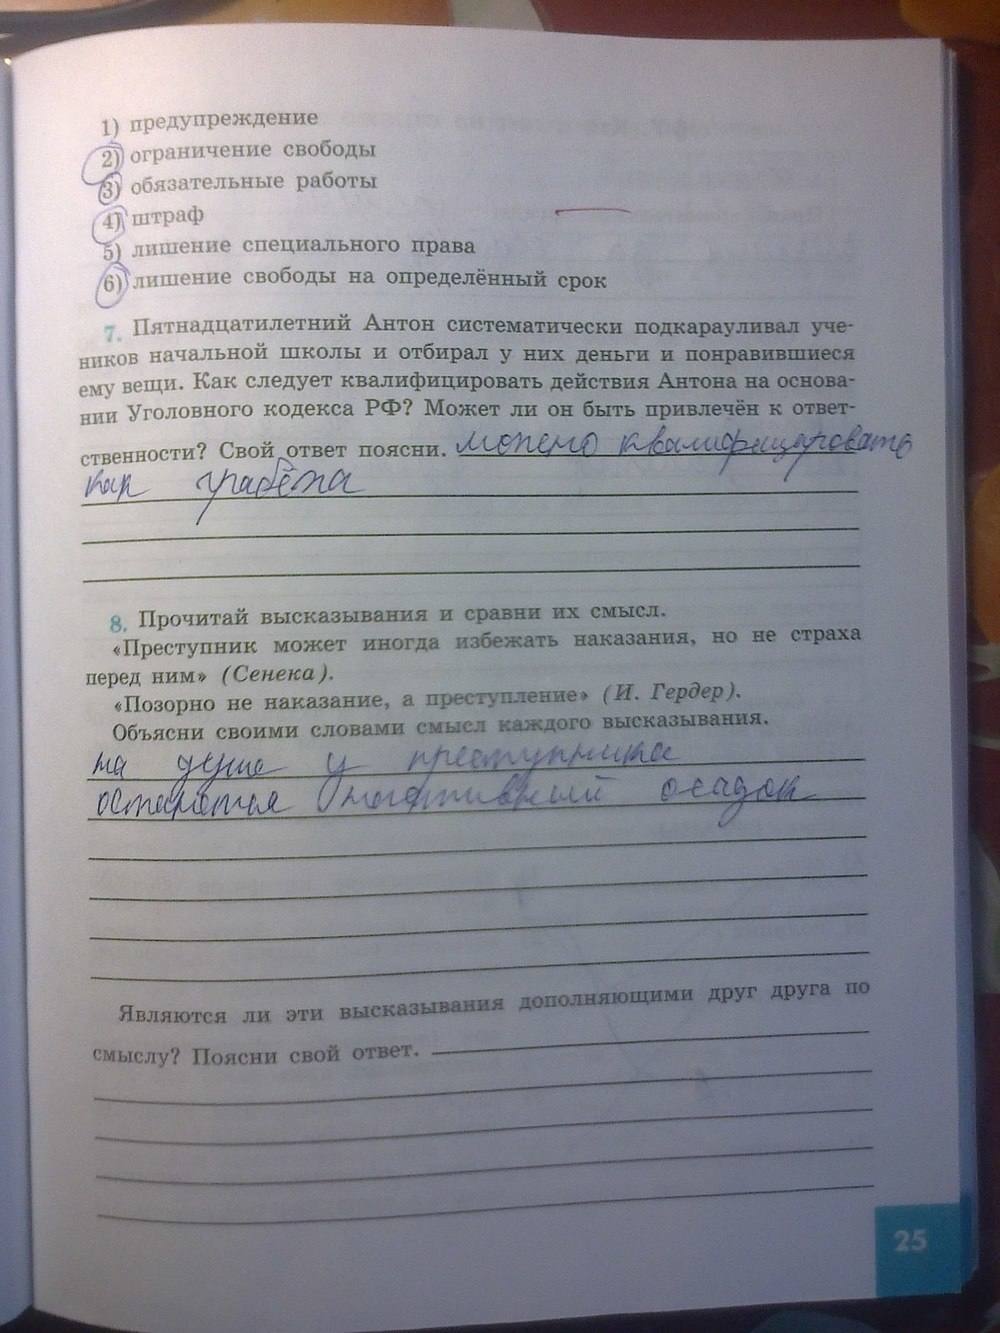 1) предупреждение
2) ограничение свободы
3) обязательные работы
4) штраф
5) лишение специального права
6) лишение свободы на определённый срок
7. Пятнадцатилетний Антон систематически подкарауливал уче-
ников начальной школы и отбирал у них деньги и понравившиеся
ему вещи. Как следует квалифицировать действия Антона на основа-
нии Уголовного кодекса РФ? Может ли он быть привлечён к ответ-
ственности? Свой ответ поясни. можно квалифицировать
как грабёжа
8. Прочитай высказывания и сравни их смысл.
«Преступник может иногда избежать наказания, но не страха
перед ним» (Сенека).
«Позорно не наказание, а преступление» (И. Гердер).
Объясни своими словами смысл каждого высказывания.
на душе у преступника
останется негативный осадок
Являются ли эти высказывания дополняющими друг друга по
смыслу? Поясни свой ответ.
25